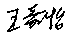 王嘉怡